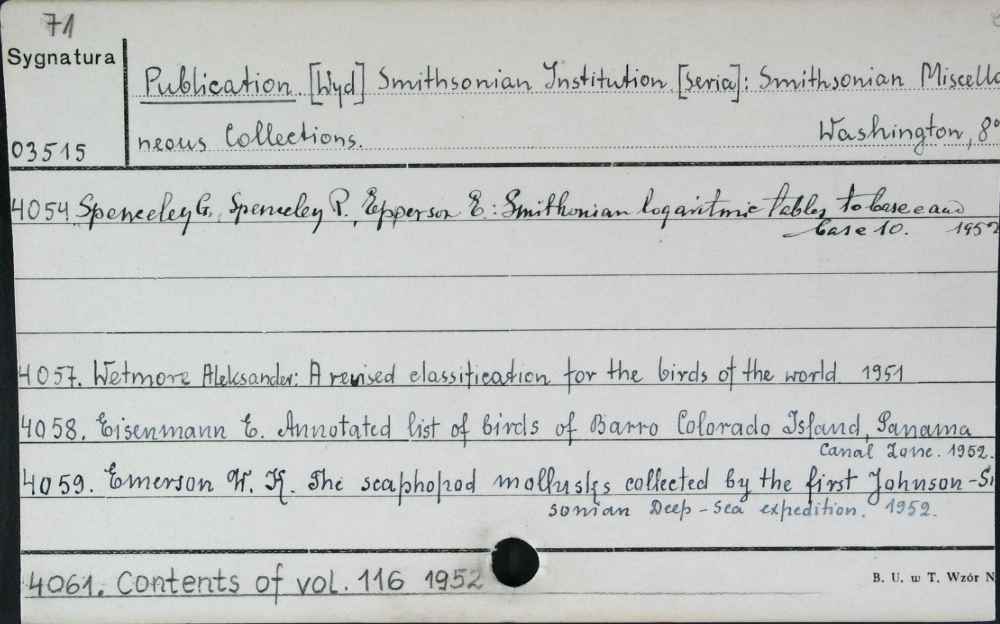 71
Sygnatura
Publication [Wyd] Smithsonian Institution. [seria]: Smithsonian Miscella
03515
neous Collections. Washington, 8°
4054 Spenceley G., Spenceley R., Epperson E: Smithonian logaritmic tables to base e and
base 10. 1952
4057. Wetmore Aleksander: A revised classification for the birds of the world 1951
4058. Eisenmann E. Annotated list of birds of Barro Colorado Island, Panama
Canal Zone. 1952.
4059. Emerson W. K. The scaphopod mollusks collected by the first Johnson-Smi
sonian Deep-Sea expedition. 1952.
4061. Contents of vol. 116 1952
B. U. w T. Wzór N